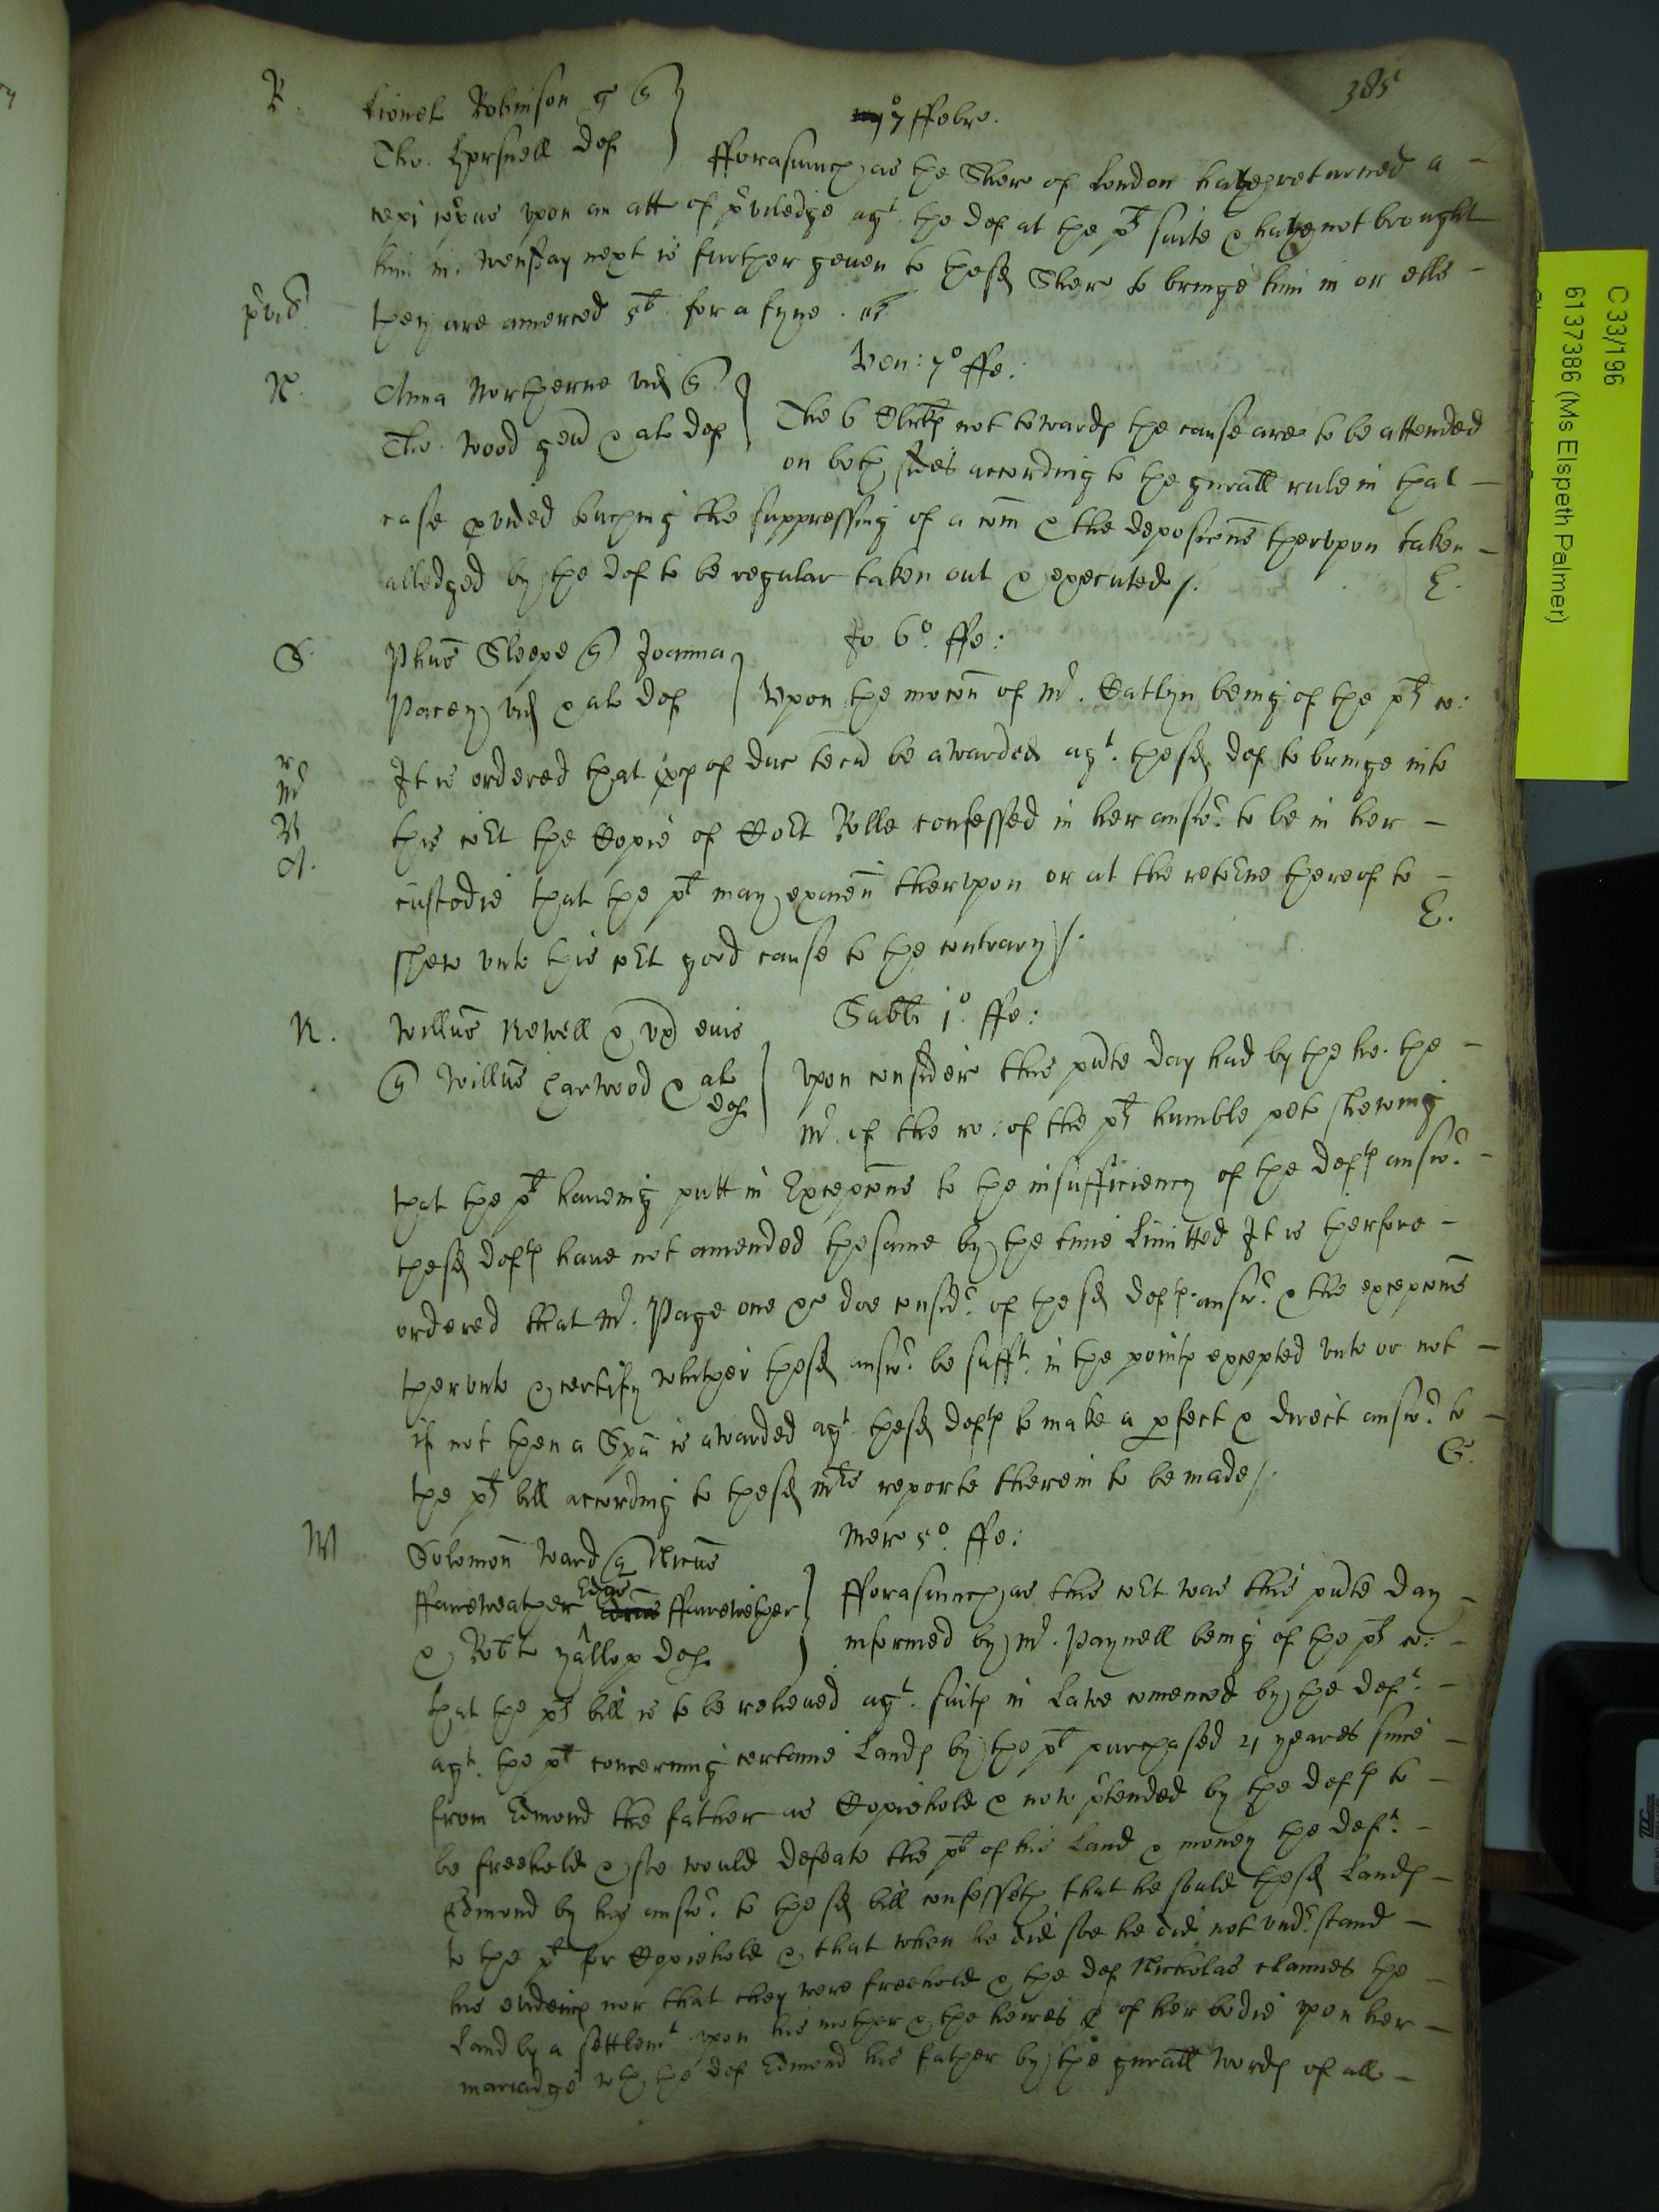 385
R. Lionel Robinson q G
7º ffebr.
Tho. def
fforasmuch as the Sher of London have returned a
cepi corpus upon an att of pviledge agt the def at the plt suite & have not brought
him in. Wensday next is further geuen to the sd Sher to bringe him in or ells
they are amerced 5li for a fyne.
N. Anna Northerne vid G
Ven: 7º ffe:
Tho. Wood gen & al def
The 6 Clerks not towards the cause are to be attended
on both sides according to the gnrall rule in that
case pvided touching the suppressing of a com & the deposicons therupon taken
alledged by the def to be regular taken out & executed /.
E.
S. Phus Sleepe G Joanna
Jo 6º. ffe:
Pacey vid & al def
Upon the mocon of Mr. Catlyn being of the plt co:
r
Mr
R
A.
It is ordered that pcs of duc tecu be awarded agt. the sd def to bringe into
this cort the Copie of Cort Rolle confessed in her answ. to be in her
custodie that the plt may examen therupon or at the retorne thereof to
E.
shew unto this cort good cause to the contrary /.
N. Willus Newell & ux eius
Sabti 1º. ffe:
G Willus Harwood & al
def
Upon consideir this pnte day had by the ho. the
Mr. of the ro: of the plt humble peto shewing
that the plt haveing putt in Excepcons to the insufficiency of the defts answ.
the sd defts have not amended the same by the time limitted It is therfore
ordered that Mr. Page one &c doe consid. of the sd defts answ. & the excepcons
therunto & certify whether the sd answ. be sufft. in the points excepted unto or not
if not then a Spa is awarded agt the sd defts to make a pfect & direct answ. to
G.
the plt bill according to the sd Mrs reporte therein to be made /.
W Solomon Ward G Nicus
Mer 5º. ffe:
ffareweather Edus ffarewether
& Robt Yallop def.
fforasmuch as this cort was this pnte day
informed by Mr. Paynell being of the plt co:
that the plt bill is to be releived agt. suits in lawe comenced by the deft.
agt. the plt concerning certaine lands by the plt purchased 21 yeares since
from Edmond the father as Copiehold & now ptended by the defts to
be freehold & soe would defeate the plt of his land & money the deft.
Edmond by his answ. to the sd bill confesseth that he sould the sd lands
to the plt for Copiehold & that when he did soe he did not und.stand
his evidence nor that they were freehold & the def Nicholas claimes the
land by a settlemt upon his mother & the heires of her bodie upon her
mariadge wth the def Edmond his father by the gnrall words of all
C 33/196
6137386 (Ms Elspeth Palmer)